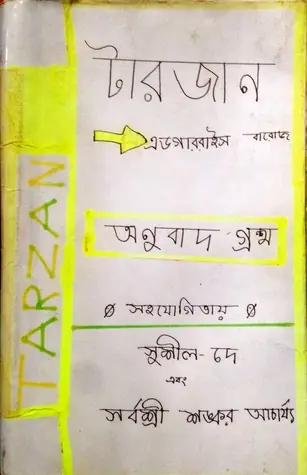 টারজান
এডগাররাইস বারোজ
অনুবাদ গ্রন্থ
সহযোগিতায়
সুশীল-দে
এবং
সর্বশ্রী শঙ্কর আচার্য্য
TARZAN